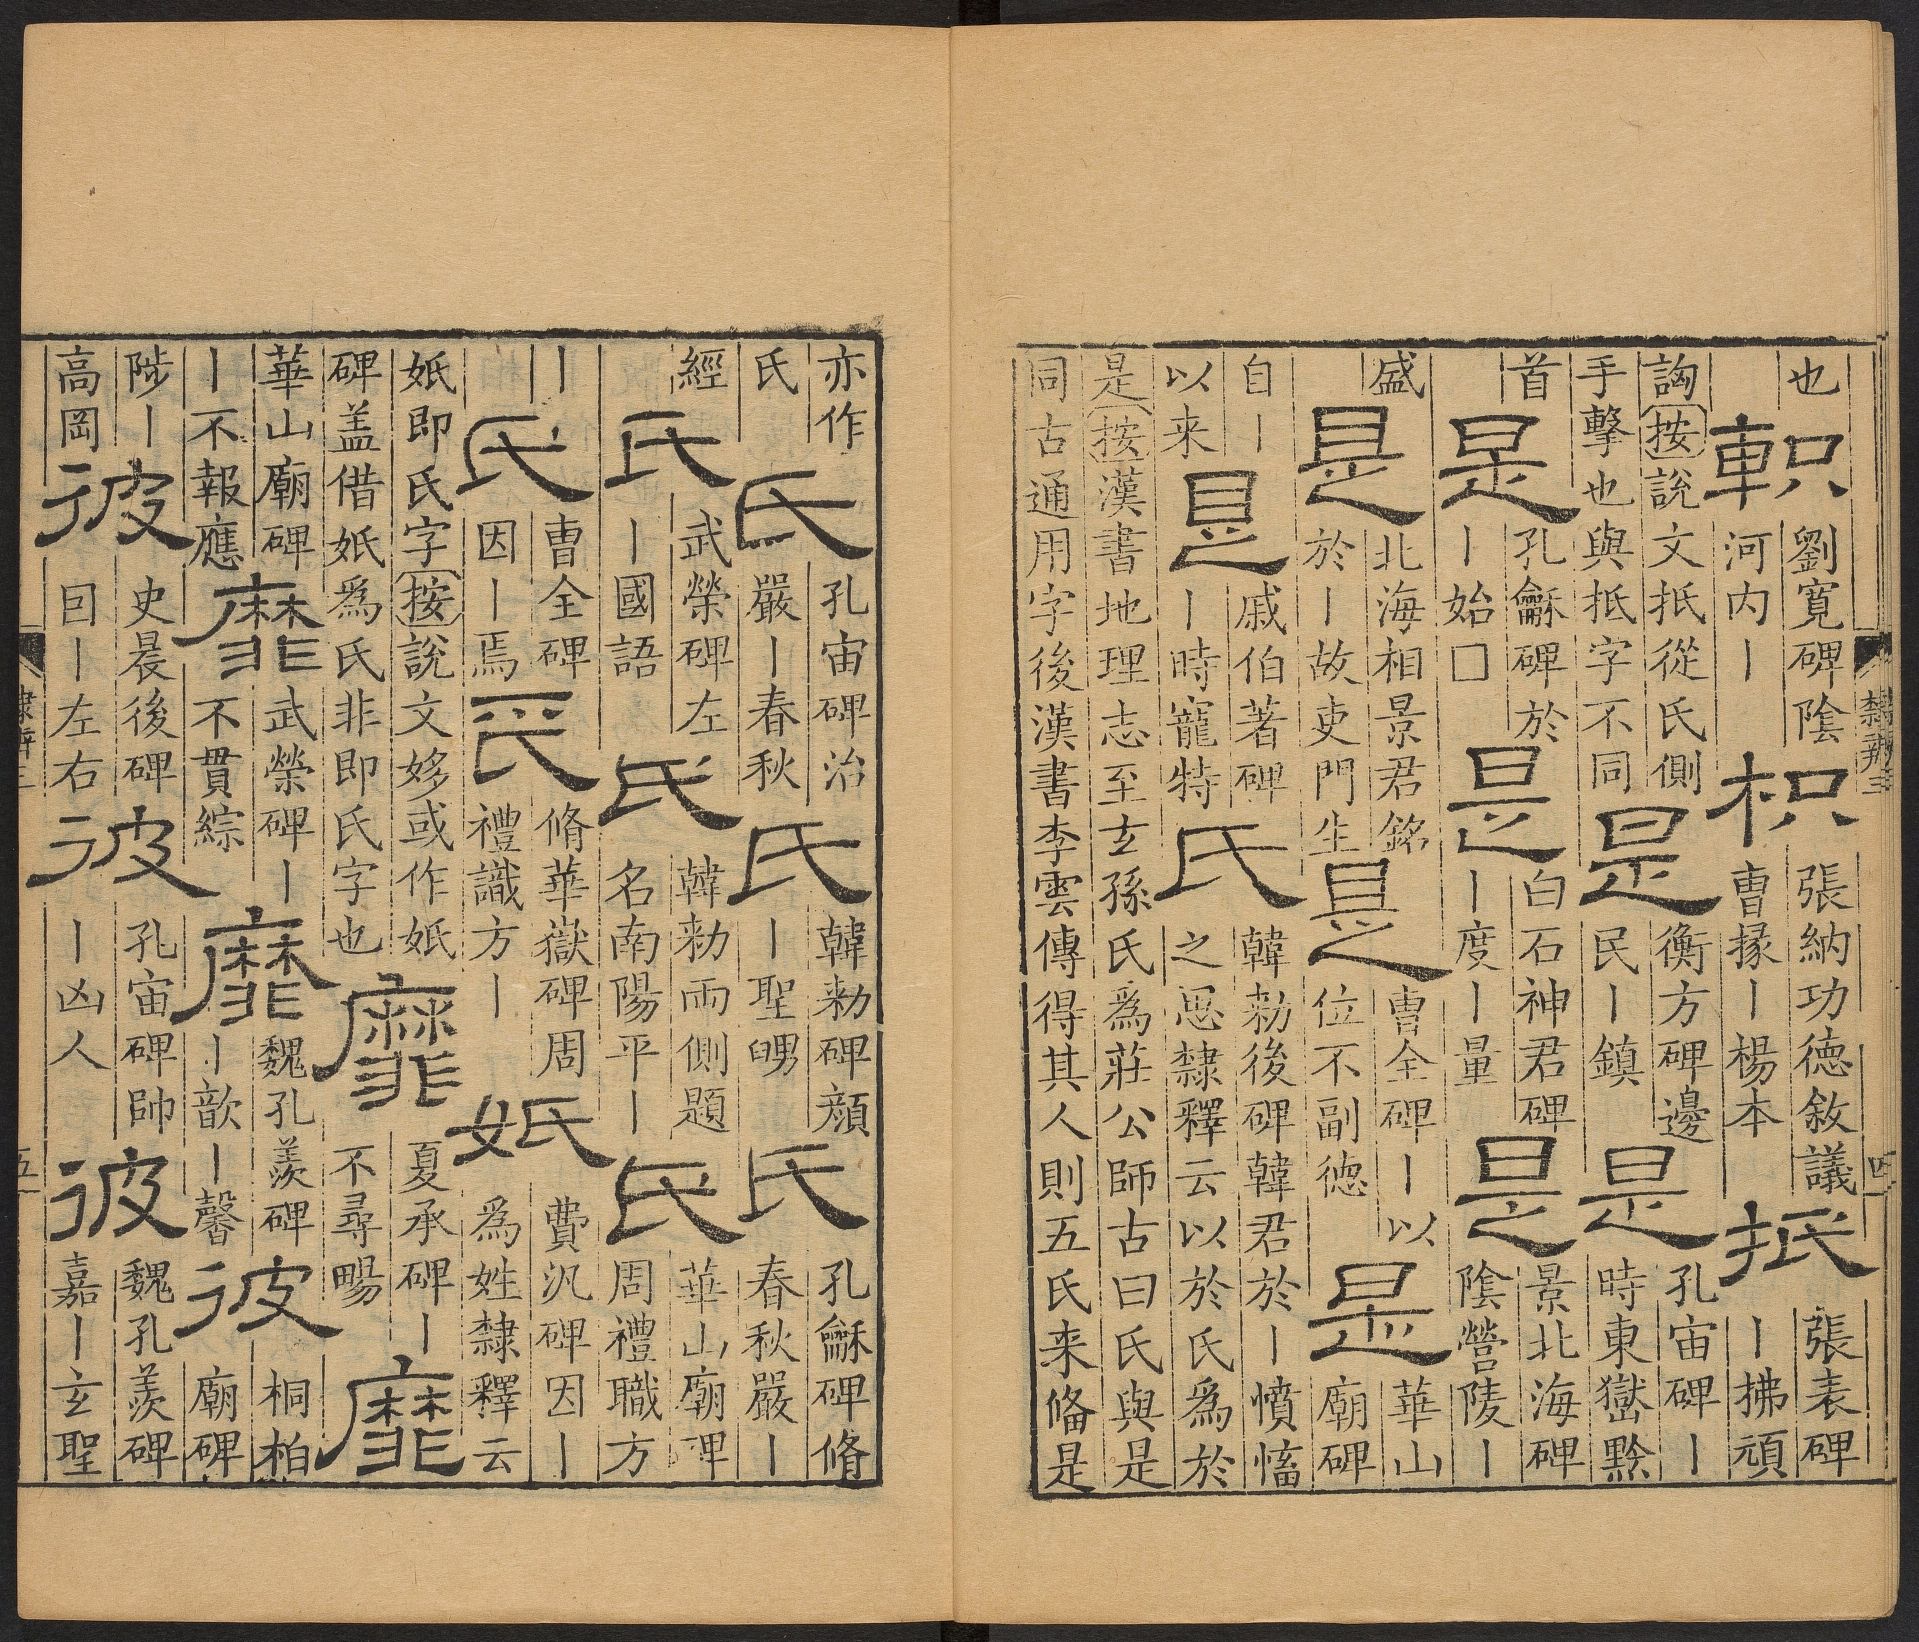 也軹劉寬碑陰河内丨枳張納功德敘議曹掾丨楊本抵張表碑丨拂頑
詾按說文抵從氏側手擊也與抵字不同是衡方碑邊民丨鎮是孔宙碑丨時東嶽黔
首是孔龢碑於丨始□是白石神君碑丨度丨量是景北海碑陰營陵丨
盛是北海相景君銘於丨故吏門生是曹全碑丨以位不副德是華山廟碑
自丨以来是戚伯著碑丨時寵特氏韓勑後碑韓君於丨憤愊之思隸釋云以於氏為於
是按漢書地理志至玄孫氏為莊公師古曰氏與是同古通用字後漢書李雲傳得其人則五氏来俻是
隸辨三 四
亦作氏氏孔宙碑治嚴丨春秋氏韓勑碑顔丨聖舅氏孔龢碑脩春秋嚴丨
經氏武榮碑左丨國語氏韓勑兩側題名南陽平丨氏華山廟碑周禮職方
丨氏曹全碑因丨焉氏脩華嶽碑周禮識方丨費汎碑因丨為姓隸釋云
即氏字按說文姼或作碑盖借為氏非即氏字也靡夏承碑丨不尋畼靡
華山廟碑丨不報應靡武榮碑丨不貫綜靡魏孔羨碑丨歆丨馨彼桐柏廟碑
陟丨高岡彼史晨後碑囘丨左右彼孔宙碑帥丨凶人彼魏孔羨碑嘉丨玄聖
隸辨三 五